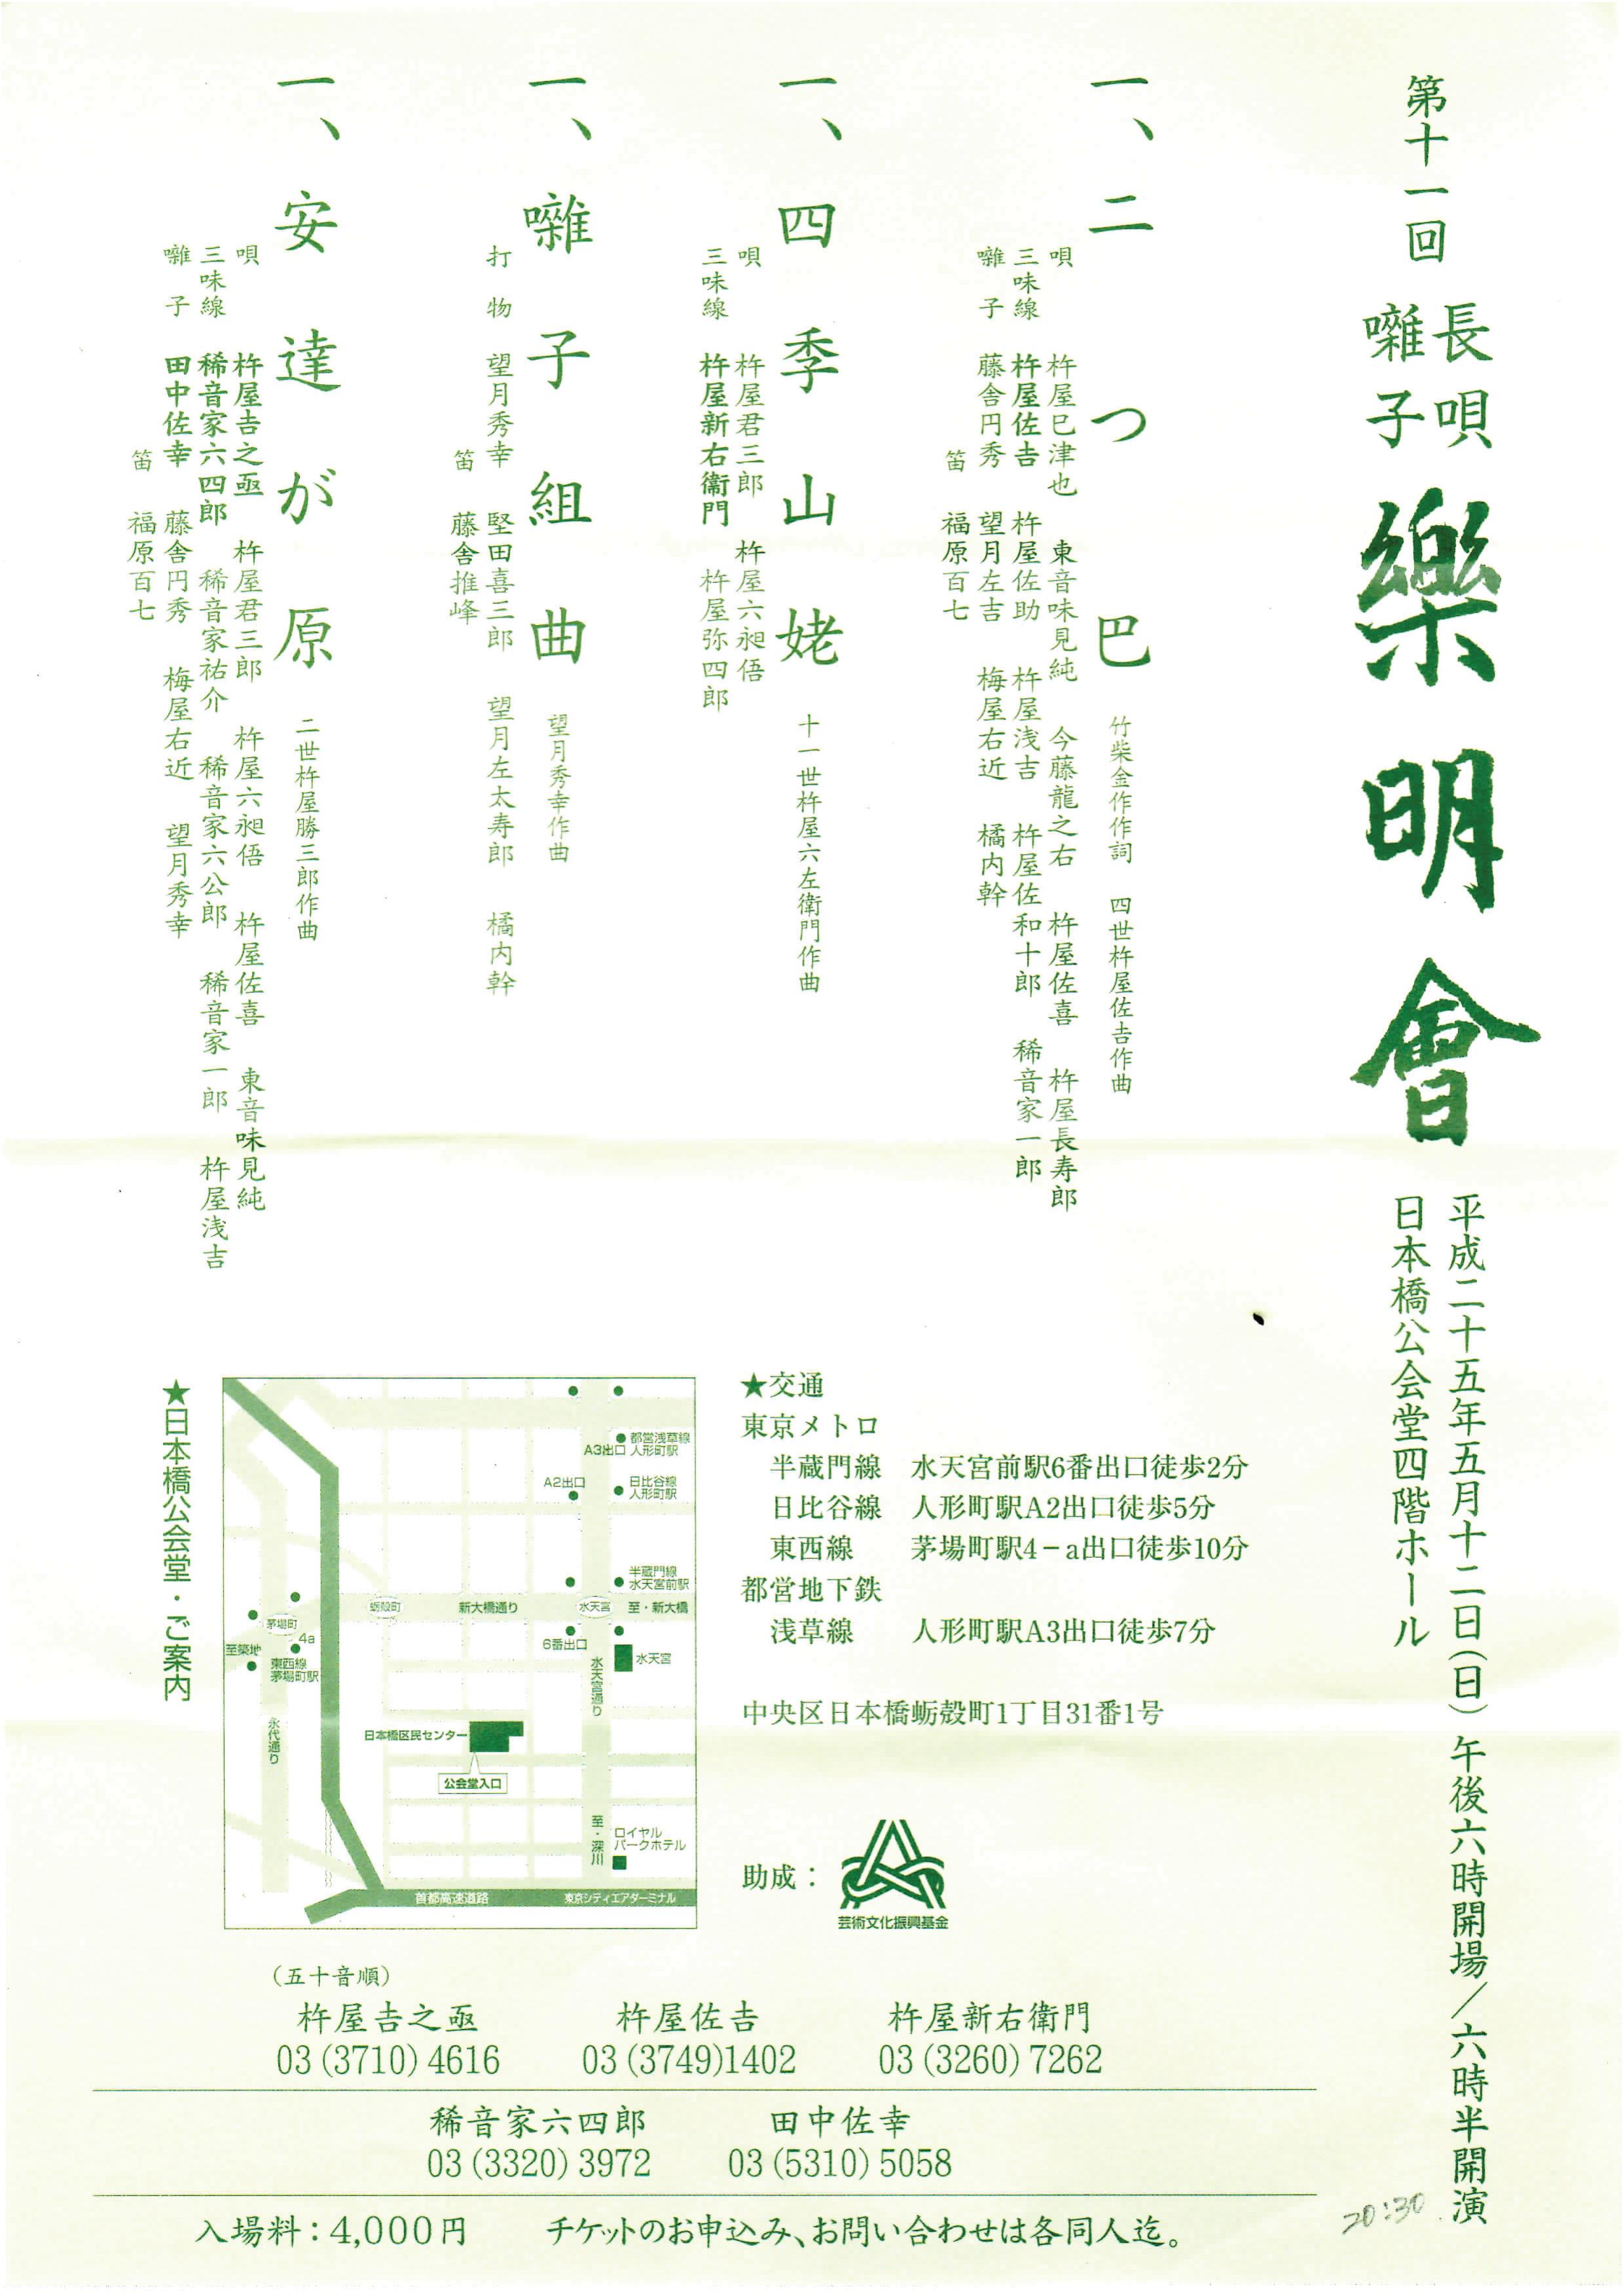 第十一回
長唄
囃子
樂明會
平成二十五年五月十二日(日) 午後六時開場/六時半開演
日本橋公会堂四階ホール
20:30
一、二つ巴
竹柴金作作詞 四世杵屋佐吉作曲
唄 杵屋巳津也 東音味見純 今藤龍之右 杵屋佐喜 杵屋長寿郎
三味線 杵屋佐吉 杵屋佐助 杵屋浅吉 杵屋佐和十郎 稀音家一郎
囃子 藤舎円秀 望月左吉 梅屋右近 橘内幹
笛 福原百七
一、四季山姥
十一世杵屋六左衛門作曲
唄 杵屋君三郎 杵屋六昶悟
三味線 杵屋新右衛門 杵屋弥四郎
一、囃子組曲
望月秀幸作曲
打物 望月秀幸 堅田喜三郎 望月左太寿郎 橘内幹
笛 藤舎推峰
一、安達が原
二世杵屋勝三郎作曲
唄 杵屋吉之亟 杵屋君三郎 杵屋六昶悟 杵屋佐喜 東音味見純
三味線 稀音家六四郎 稀音家祐介 稀音家六公郎 稀音家一郎 杵屋浅吉
囃子 田中佐幸 藤舎円秀 梅屋右近 望月秀幸
笛 福原百七
★交通
東京メトロ
半蔵門線 水天宮前駅6番出口徒歩2分
日比谷線 人形町駅A2出口徒歩5分
東西線 茅場町駅4-a出口徒歩10分
都営地下鉄
浅草線 人形町駅A3出口徒歩7分
中央区日本橋蛎殻町1丁目31番1号
助成：
芸術文化振興基金
★日本橋公会堂・ご案内
都営浅草線
人形町駅
A3出口
A2出口
日比谷線
人形町駅
半蔵門線
水天宮前駅
蛎殻町
新大橋通り
水天宮
至・新大橋
茅場町
4a
至築地
東西線
茅場町駅
6番出口
水天宮
水天宮通り
永代通り
日本橋区民センター
公会堂入口
至・深川
ロイヤル
パークホテル
首都高速道路
東京シティエアターミナル
(五十音順)
杵屋吉之亟 杵屋佐吉 杵屋新右衛門
03(3710)4616 03(3749)1402 03(3260)7262
稀音家六四郎 田中佐幸
03(3320)3972 03(5310)5058
入場料：4,000円 チケットのお申込み、お問い合わせは各同人迄。